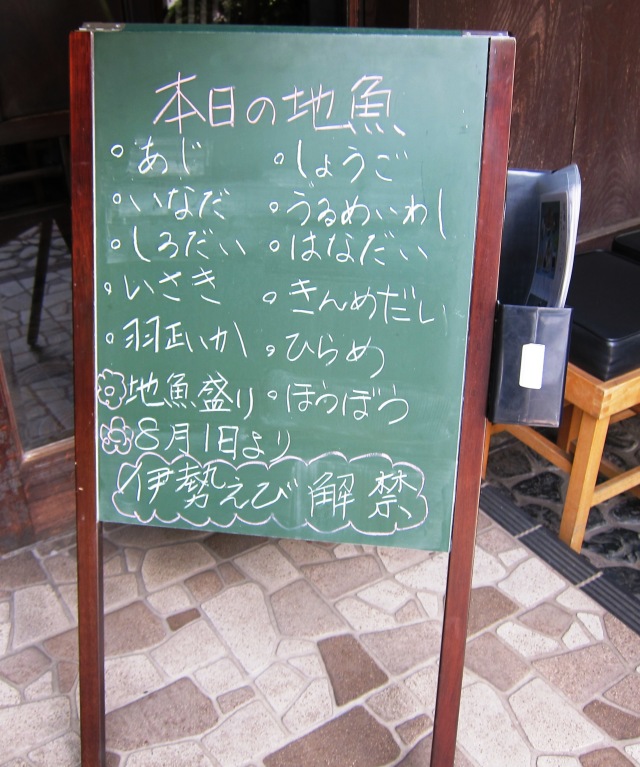 本日の地魚
。あじ 。しょうご
。いなだ 。うるめいわし
。しろだい 。はなだい
。いさき 。きんめだい
。羽正いか 。ひらめ
地魚盛り 。ほうぼう
8月1日より
伊勢えび解禁